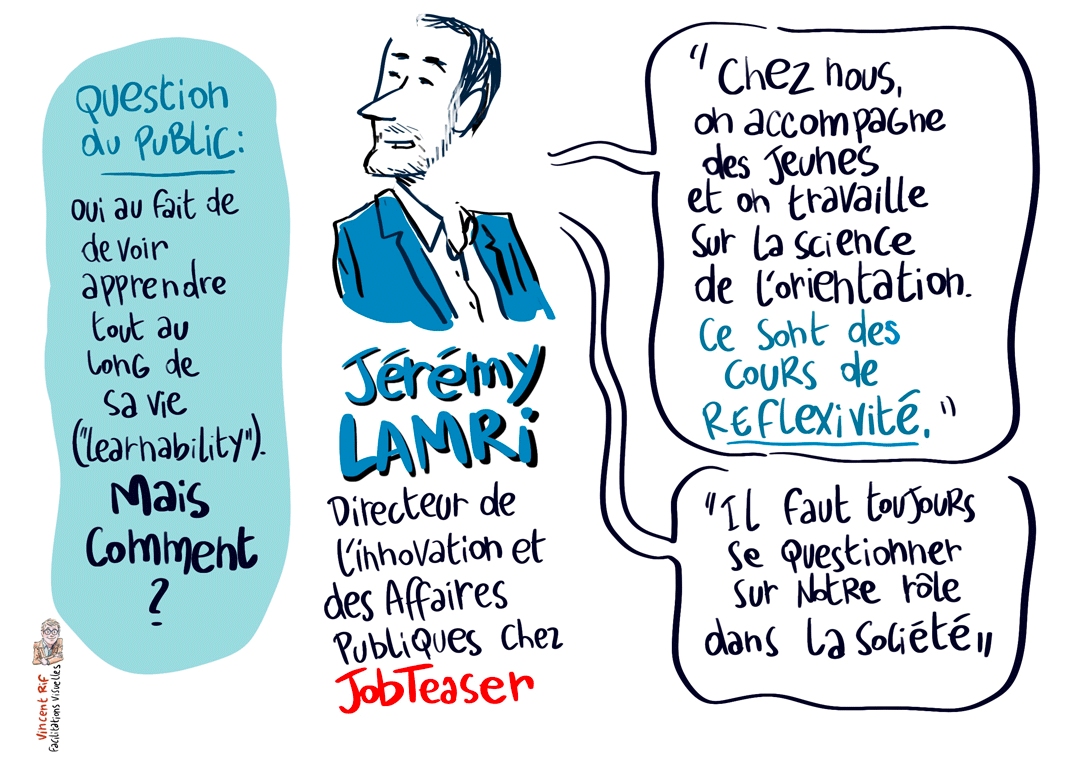 Question
du Public:
oui au fait de
devoir
apprendre
tout au
long de
sa vie
("learnability").
Mais
Comment
?
Jérémy
LAMRI
Directeur de
l'innovation et
des Affaires
Publiques chez
JobTeaser
"Chez nous,
on accompagne
des jeunes
et on travaille
sur la science
de l'orientation.
Ce sont des
cours de
REFLEXIVITÉ."
"Il faut toujours
se questionner
sur notre rôle
dans la société"
Vincent Rif
Facilitations Visuelles